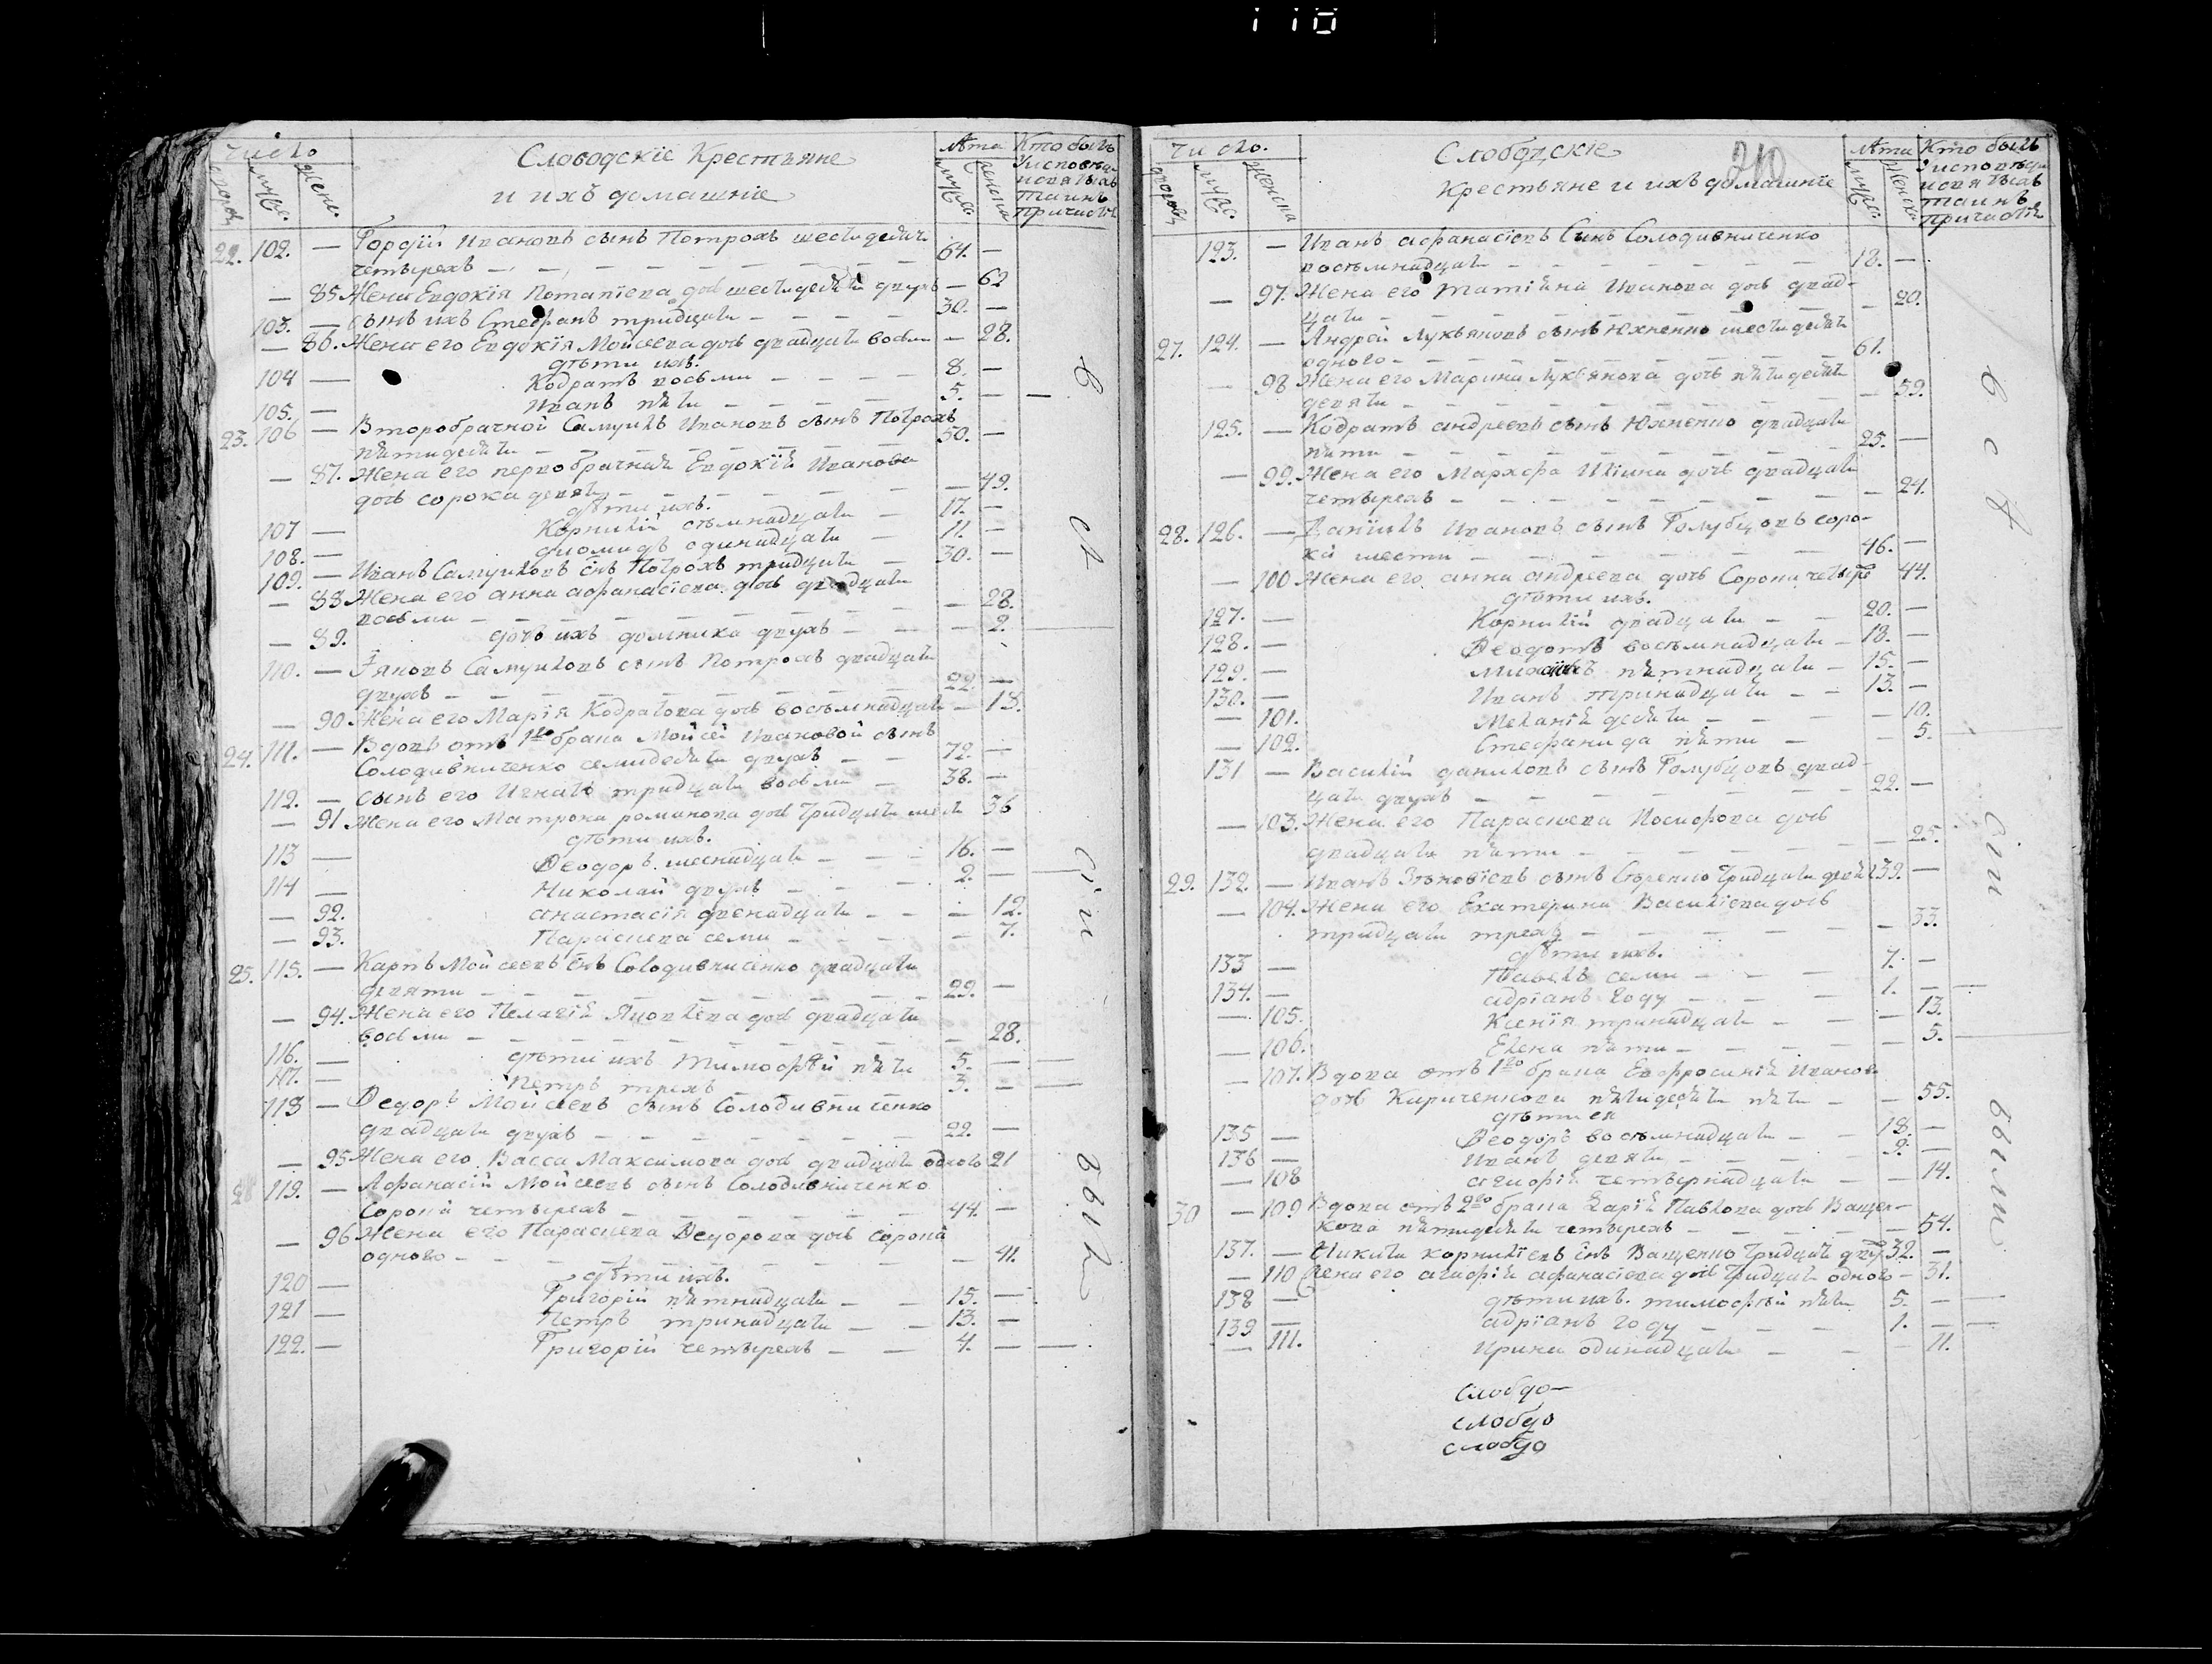 110
число
Слободскіе Крестьяне
и ихъ домашніе
лѣта
Кто былъ
у исповѣди
и святыхъ
таинъ
причастія
дворовъ
муж.
женс.
муж.
женска
22. 102. — Гордій Ивановъ сынъ Потрохъ шестидесяти
четырехъ — 64. —
— 85 Жена Евдокія Потапіева дочь шестидесяти двухъ — 62
103. — сынъ ихъ Стефанъ тридцати — 30. —
— 86. Жена его Евдокія Моисеева дочь двадцати восьми — 28.
дѣти ихъ.
104 — Кодратъ восьми — 8. —
105. — Иванъ пяти — 5. — —
23. 106 — Второбрачной Самуилъ Ивановъ сынъ Потрохъ
пятидесяти — 50. —
— 87. Жена его первобрачная Евдокія Иванова
дочь сорока девяти — 49.
дѣти ихъ.
107 — Корнилій семнадцати — 17. —
108. — диомидъ одинадцати — 11. —
109. — Иванъ Самуиловъ снъ Потрохъ тридцати — 30. —
— 88 Жена его анна афанасіева дочь двадцати
восьми — 28.
— 89. дочь ихъ домника двухъ — 2. —
110. — Іяковъ Самуиловъ сынъ Потрохъ двадцати
двухъ — 22. —
— 90 Жена его Марія Кодратова дочь восемнадцати — 18.
24. 111. — Вдовъ отъ 1го брака Мойсей Ивановой сынъ
Солодивниченко семидесяти двухъ — 72. —
112. — сынъ его Игнатъ тридцати восьми — 38. —
— 91 Жена его Матрона романова дочь тридцати шести 36
дѣти ихъ.
113 — Ѳеодоръ шеснадцати — 16. —
114 — Николай двухъ — 2. — —
— 92. анастасія двенадцати — 12.
— 93. Параскева семи — 7.
25. 115. — Карпъ Мойсеевъ снъ Солодивниченко двадцати
девяти — 29. —
— 94. Жена его Пелагія Яковлева дочь двадцати
восьми — 28.
116. — дѣти ихъ Тимофѣй пяти 5. — —
117. — Петръ трехъ 3. — —
118 — Ѳедоръ Мойсеевъ сынъ Солодивниченко
двадцати двухъ — 22. —
— 95 Жена его Васса Максимова дочь двадцати одного 21
119. — Афанасій Мойсеевъ сынъ Солодивниченко
сорока четырехъ — 44. —
— 96 Жена его Параскева Ѳедорова дочь сорока
одного — 41.
дѣти ихъ.
120 — Григорій пятнадцати — 15. —
121 — Петръ тринадцати — 13. —
122. — Григорій четырехъ — 4. — —
число.
Слободскіе
210
Крестьяне и ихъ домашніе
лѣта
Кто былъ
у исповѣди
и святыхъ
таинъ
причастія
дворовъ
муж.
женска
муж.
женска
123. — Иванъ афанасіевъ Сынъ Солодивниченко
восемнадцати — 18. —
— 97. Жена его Татіяна Иванова дочь двад-
цати — 20.
27. 124. — Андрей Лукьяновъ сынъ Юхненко шестидесяти
одного — 61.
— 98 Жена его Марина Лукьянова дочь пятидесяти
девяти — 59.
125. — Кодратъ андреевъ сынъ Юхненко двадцати
пяти — 25. —
— 99. Жена его Марфа Иліина дочь двадцати
четырехъ — 24.
28. 126. — Даніилъ Ивановъ сынъ Голубцовъ соро-
ка шести — 46. —
— 100 Жена его анна андреева дочь Сорока четыре 44.
дѣти ихъ.
127. — Корнилій двадцати — 20. —
128. — Ѳеодотъ восемнадцати — 18. —
129. — пятнадцати — 15. —
130. — Иванъ тринадцати — 13. —
— 101. Меланія десяти — 10.
— 102. Стефанида пяти — 5. —
131 — Василій даниловъ сынъ Голубцовъ двад-
цати двухъ — 22. —
— 103. Жена его Параскева Никифорова дочь
двадцати пяти — 25.
29. 132. — Иванъ Зѣновіевъ сынъ тридцати девяти 39. —
— 104. Жена его Екатерина Василіева дочь
тридцати трехъ — 33.
дѣти ихъ.
133 — Павелъ семи — 7. —
134. — адріанъ году — 1. — —
— 105. Ксенія тринадцати — 13.
— 106. Елена пяти — 5. —
— 107. Вдова отъ 1го брака Евфросинія Иванова
дочь Кириченкова пятидесяти пяти — 55.
дѣти ея
135 — Ѳеодоръ восемнадцати — 18. —
136 — Иванъ девяти — 9. —
— 108 агафія четырнадцати — 14.
30 — 109 Вдова отъ 2го брака Дарія Павлова дочь Ващен-
кова пятидесяти четырехъ — 54.
137. — Никита корниліевъ снъ Ващенко тридцати двухъ 32. —
— 110 Жена его агафія афанасіева дочь тридцати одного — 31.
138 — дѣти ихъ. тимофѣй пяти 5. — —
139 — адріанъ году — 1. — —
— 111. Ирина одинадцати — 11.
Слобдо—
слобдо
слобдо